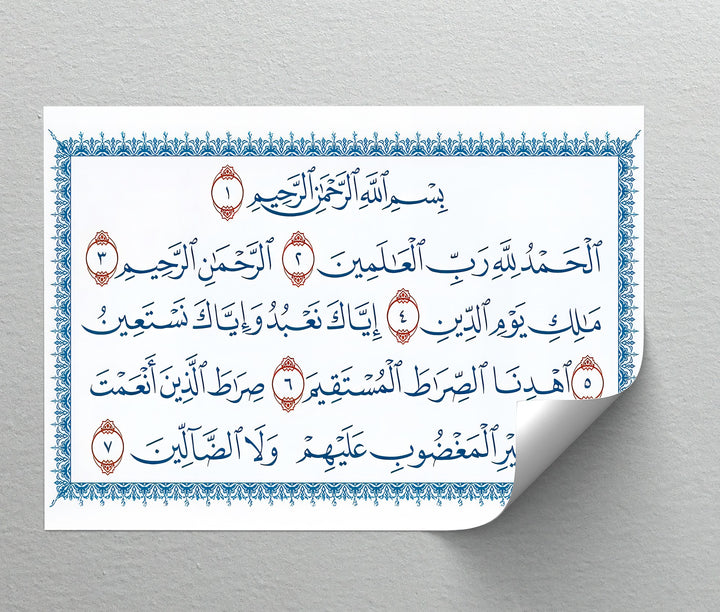 بِسْمِ ٱللَّهِ ٱلرَّحْمَٰنِ ٱلرَّحِيمِ ١
ٱلْحَمْدُ لِلَّهِ رَبِّ ٱلْعَٰلَمِينَ ٢ ٱلرَّحْمَٰنِ ٱلرَّحِيمِ ٣
مَٰلِكِ يَوْمِ ٱلدِّينِ ٤ إِيَّاكَ نَعْبُدُ وَإِيَّاكَ نَسْتَعِينُ
٥ ٱهْدِنَا ٱلصِّرَاطَ ٱلْمُسْتَقِيمَ ٦ صِرَاطَ ٱلَّذِينَ أَنْعَمْتَ
ٱلْمَغْضُوبِ عَلَيْهِمْ وَلَا ٱلضَّآلِّينَ ٧